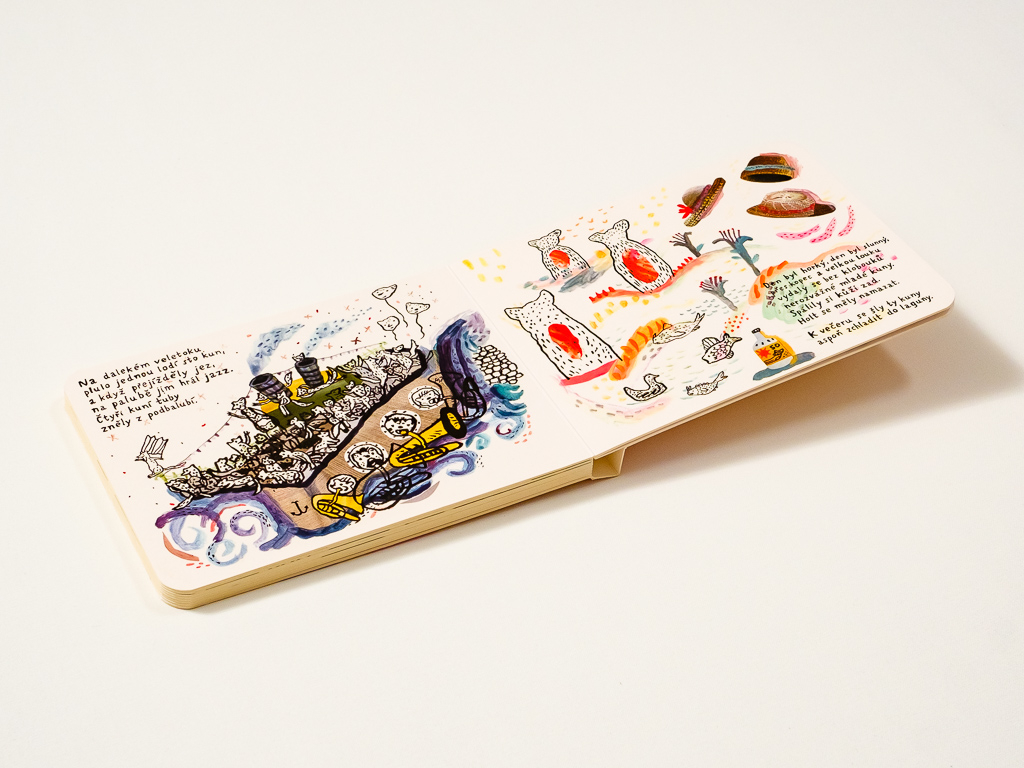 Na dalekém veletoku
plulo jednou lodí sto kun,
a když přejížděly jez,
na palubě jim hrál jazz.
Čtyři kuní huby
zněly z podpalubí.
Den byl horký, den byl slunný,
přes kopec a velkou louku
vydaly se bez klobouků
nerozvážné mladé kuny.
Spálily si kůži zad.
Holt se měly namazat.
K večeru se šly ty kuny
aspoň zchladit do laguny.